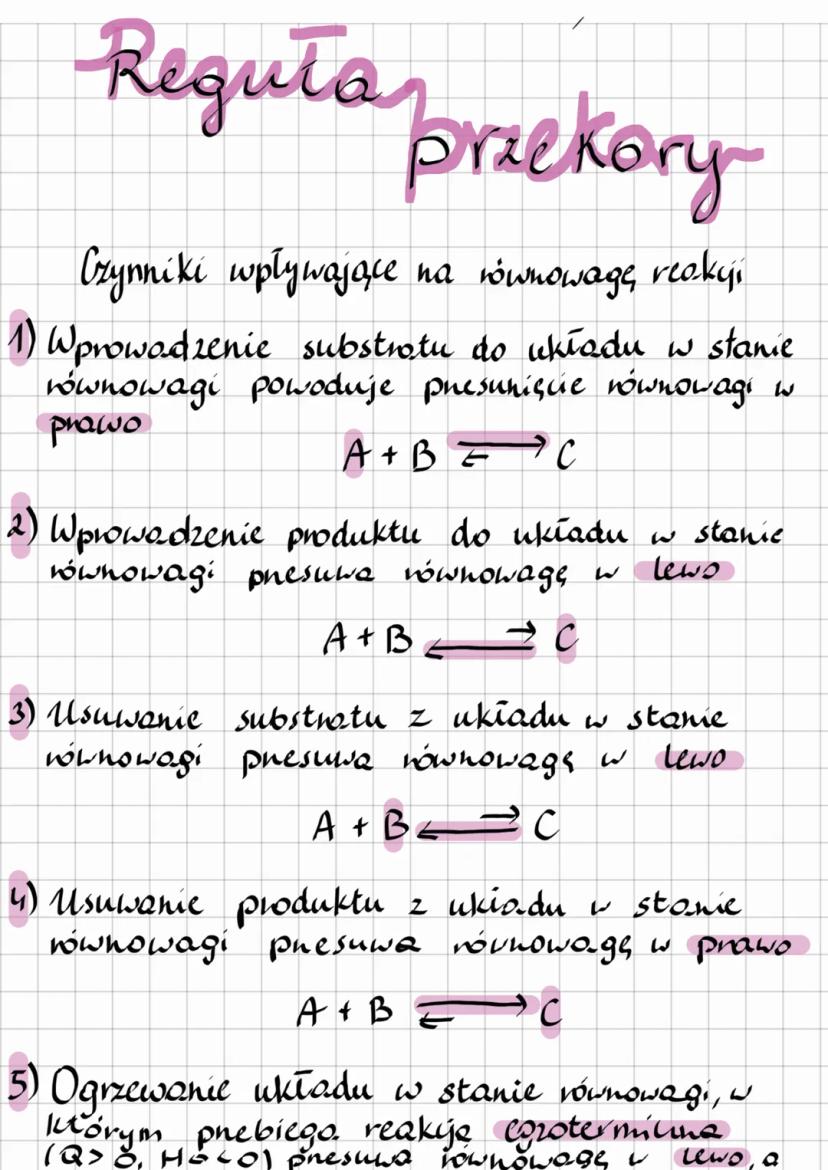 Reguła
przekory
Czynniki wpływające na równowagę reakcji
1) Wprowadzenie substratu do układu w stanie
równowagi powoduje przesunięcie równowagi w
prawo
A + B ⇄ C
2) Wprowadzenie produktu do układu w stanie
równowagi przesuwa równowagę w lewo
A + B ⇄ C
3) Usuwanie substratu z układu w stanie
równowagi przesuwa równowagę w lewo
A + B ⇄ C
4) Usuwanie produktu z układu w stanie
równowagi przesuwa równowagę w prawo
A + B ⇄ C
5) Ogrzewanie układu w stanie równowagi, w
którym przebiega reakcja egzotermiczna
(Q>0, H<0) przesuwa równowagę w lewo, a